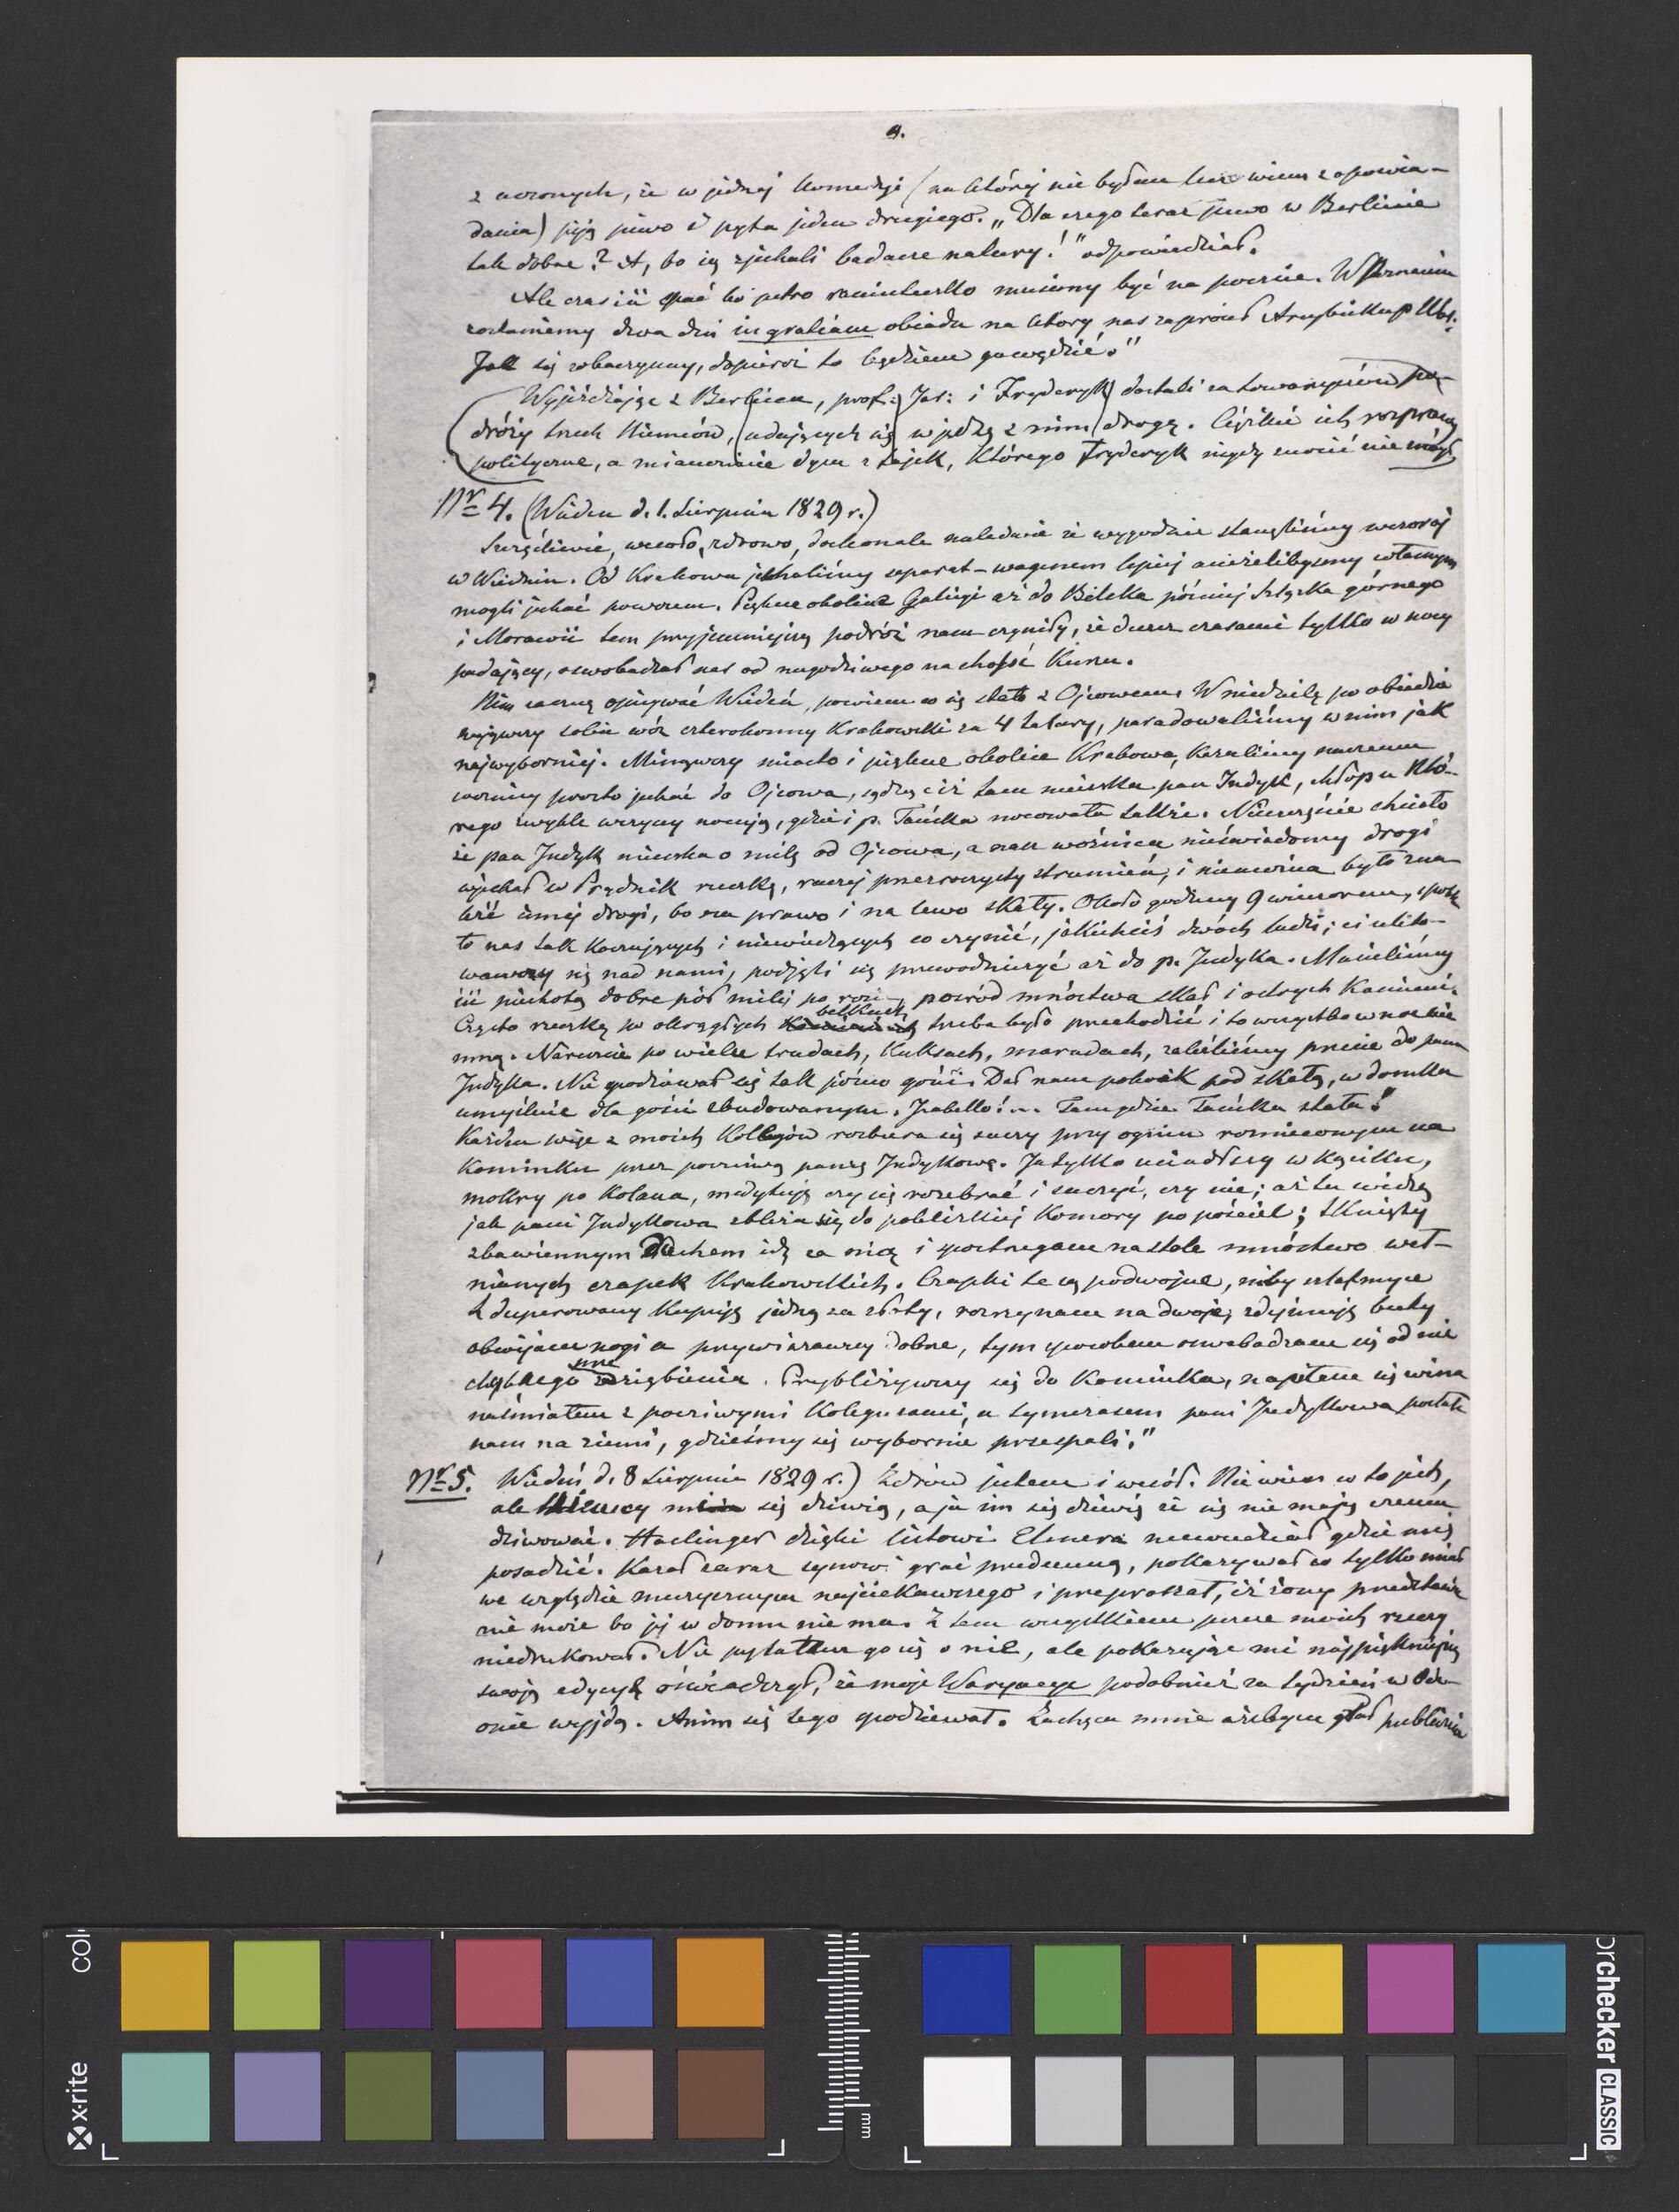 z uczonych, że w jednej komedyi (na której nie byłem lecz wiem z opowia-
dania) piją piwo i pyta jeden drugiego. „Dla czego teraz piwo w Berlinie
tak dobre? A, bo się zjechali badacze natury!" odpowiedział.
Ale czas iść spać bo jutro raniuteńko musiemy być na poczcie. W Poznaniu
zostaniemy dwa dni in gratiam obiadu na który nas zaprosił Arcybiskup Wol:
Jak się zobaczymy, dopieroż to będziem gawędzić."
Wyjeżdżając z Berlina, prof: Jar: i Fryderyk dostali za towarzyszów po-
dróży trzech Niemców, (udających się w jedną z nimi) drogę. Ciężkie ich rozprawy
polityczne, a mianowicie dym z fajek, którego Fryderyk nigdy znosić nie mógł,
Nr 4. (Wiédeń d. 1. Sierpnia 1829 r.)
Szczęśliwie, wesoło, zdrowo, doskonale nieledwie że wygodnie stanęliśmy wczoraj
w Wiedniu. Od Krakowa jechaliśmy separat-wagenem lepiej aniżelibyśmy własnym
mogli jechać powozem. Piękne okolice Galicyi aż do Bilska później Szląska górnego
i Morawii tem przyjemniejszą podróż nam czyniły, że deszcz czasami tylko w nocy
padający, oswobadzał nas od niegodziwego na chossé kurzu.
Nim zacznę opisywać Wiédeń, powiem co się stało z Ojcowem. W niedzielę po obiedzie
najęwszy sobie wóz czterokonny Krakowski za 4 talary, paradowaliśmy w nim jak
najwyborniej. Minąwszy miasto i piękne okolice Krakowa, kazaliśmy naszemu
woźnicy prosto jechać do Ojcowa, sądząc iż tam mieszka pan Indyk, chłop u któ-
rego zwykle wszyscy nocują, gdzie i p. Tańska nocowała także. Nieszczęście chciało
że pan Indyk mieszka o milę od Ojcowa, a nasz woźnica nieświadomy drogi
wjechał w Prądnik rzeczkę, raczej przezroczysty strumień, i niemożna było zna-
leźć innej drogi, bo na prawo i na lewo skały. Około godziny 9 wieczorem, spotk
to nas tak koczujących i niewiedzących co czynić, jakichciś dwóch ludzi; ci ulito-
wawszy się nad nami, podjęli się przewodniczyć aż do p. Indyka. Musieliśmy
iść piechotą dobre pół mili po rosie, pośród mnóstwa skał i ostrych kamieni.
Często rzeczkę po okrągłych belkach trzeba było przechodzić i to wszystko w noc cie
mną. Nareszcie po wielu trudach, kuksach, marudach, zaleźliśmy przecie do pana
Indyka. Nie spodziewał się tak późno gości. Dał nam pokoik pod skałą, w domku
umyślnie dla gości zbudowanym. Izabello!... Tam gdzie Tańska stała!
Każden więc z moich kollegów rozbiera się suszy przy ogniu roznieconym na
kominku przez poczciwą panią Indykową. Ja tylko usiadłszy w kąciku,
mokry po kolana, medytuję czy się rozebrać i suszyć, czy nie; aż tu widzę
jak pani Indykowa zbliża się do pobliskiej komory po pościel; tknięty
zbawiennym duchem idę za nią i spostrzegam na stole mnóstwo weł-
nianych czapek Krakowskich. Czapki te są podwójne, niby szlafmyce
Zdesperowany kupuję jedną za złoty, rozrzynam na dwoje, zdejmuję buty
obwijam nogi a przywiązawszy dobrze, tym sposobem oswobadzam się od nie
chybnego prze ziębienia. Przybliżywszy się do kominka, napiłem się wina
naśmiałem z poczciwymi kolegusami, a tymczasem pani Indykowa posłała
nam na ziemi, gdzieśmy się wybornie przespali."
Nr 5. Wiedeń d. 8 Sierpnia 1829 r.) Zdrów jestem i wesół. Nie wiem co to jest,
ale Niemcy się dziwią, a ja im się dziwię że się nie mają czemu
dziwować. Haslinger dzięki listowi Elsnera niewiedział gdzie mię
posadzić. Kazał zaraz synowi grać przedemną, pokazywał co tylko miał
we względzie muzycznym najciekawszego i przepraszał, iż żony przedstawić
nie może bo jej w domu nie ma. Z tem wszystkiem jeszcze moich rzeczy
niedrukował. Nie pytałem go się o nie, ale pokazując mi najpiękniejszą
swoją edycyę oświadczył, że moje Waryacye podobnież za tydzień w Ode-
onie wyjdą. Anim się tego spodziewał. Zachęca mnie ażebym grał publicznie
x-rite
colorchecker CLASSIC
mm